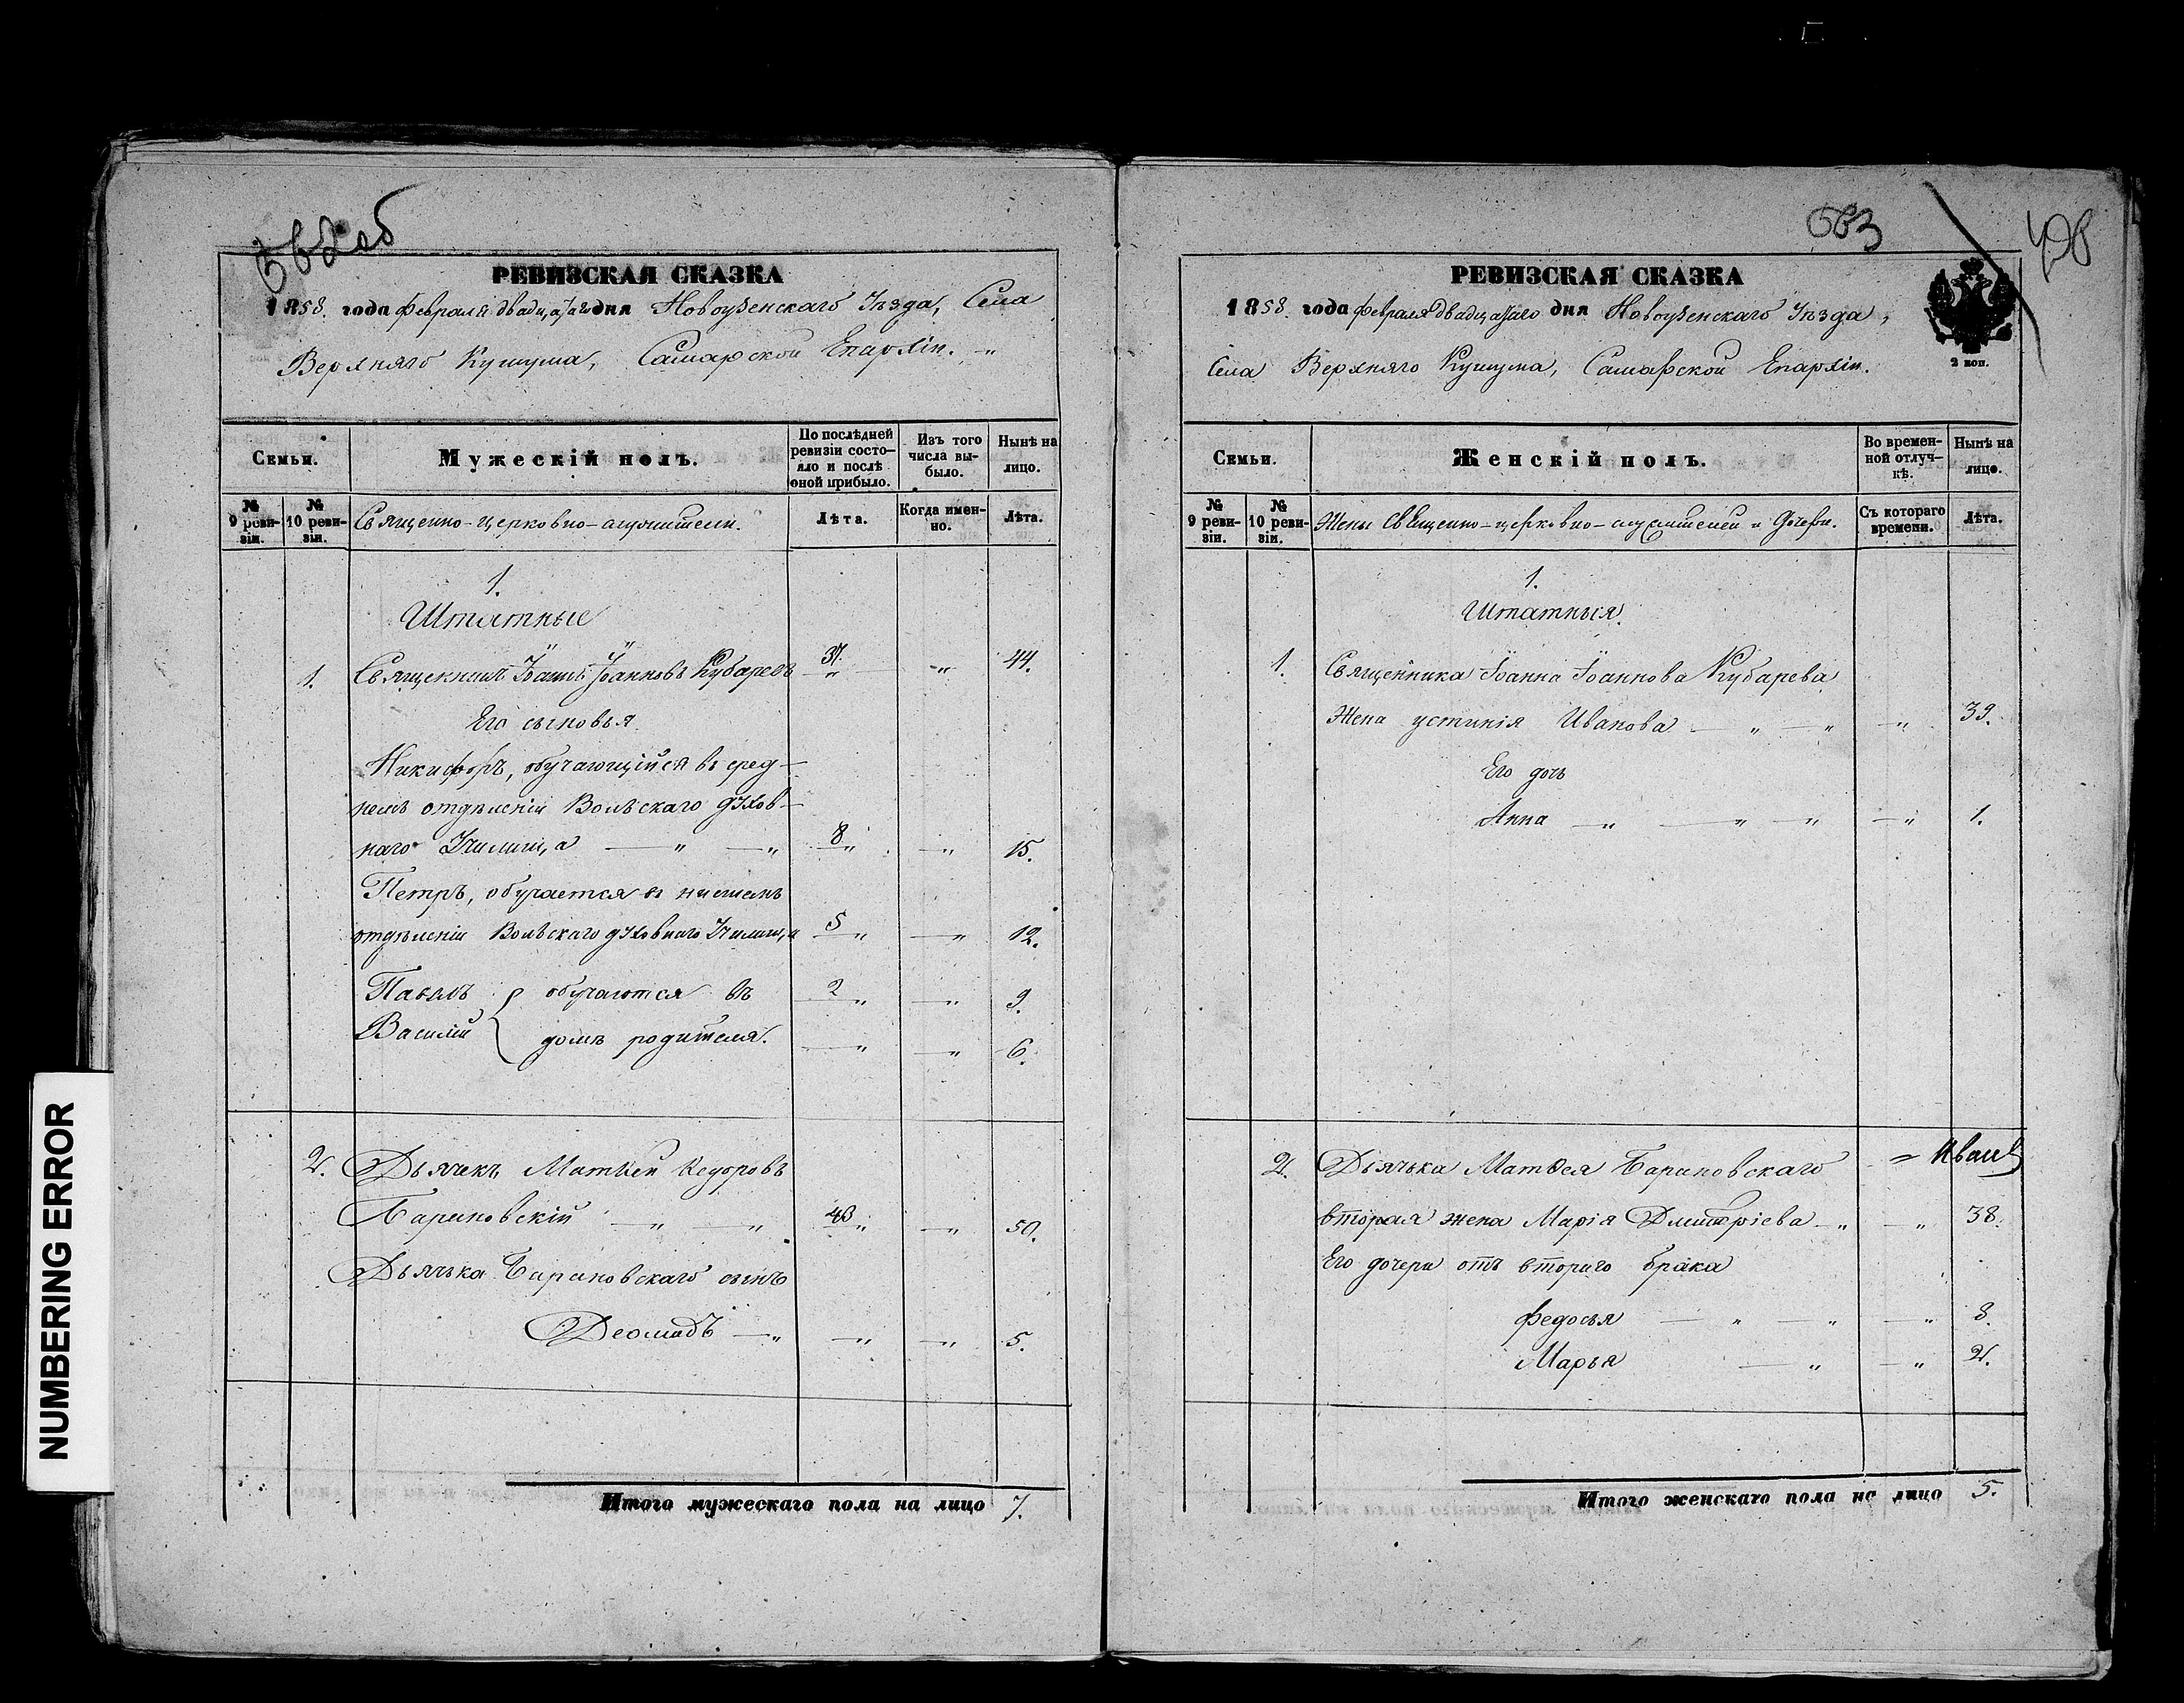 562об
РЕВИЗСКАЯ СКАЗКА
1858. года февраля двадцатаго дня Новоузенскаго Уѣзда, Села
Верхняго Кушума, Самарской Епархіи.
Семьи.
Мужескій полъ.
По послѣдней ревизіи состояло и послѣ оной прибыло.
Изъ того числа выбыло.
Нынѣ на лицо.
№ 9 ревизіи.
№ 10 ревизіи.
Священно-церковно-служители.
Лѣта.
Когда именно.
Лѣта.
1.
Штатные
1. Священникъ Іоаннъ Іоанновъ Кубаревъ 37. " 44.
Его сыновья
Никифоръ, обучающійся въ сред-
немъ отдѣленіи Вольскаго духов-
наго Училища — " — " 8 " — " 15.
Петръ, обучается въ низшемъ
отдѣленіи Вольскаго духовнаго Училища 5 " — " 12.
Павелъ обучаются въ 2 " — " 9.
Василій домѣ родителя. — " — " 6.
2. Дьячекъ Матвѣй Ѳедоровъ
Бариновскій — " — " 43 " — " 50.
Дьячька Бариновскаго сынъ
Деомидъ — " — " — " 5.
Итого мужескаго пола на лицо 7.
NUMBERING ERROR
563
РЕВИЗСКАЯ СКАЗКА
1858. года февраля двадцатаго дня Новоузенскаго Уѣзда,
Села Верхняго Кушума, Самарской Епархіи.
2 коп.
Семьи.
Женскій полъ.
Во временной отлучкѣ.
Нынѣ на лицо.
№ 9 ревизіи.
№ 10 ревизіи.
Жены Священно-церковно-служителей и дочери.
Съ котораго времени.
Лѣта.
1.
Штатныя.
1. Священника Іоанна Іоаннова Кубарева
Жена Устинія Иванова — " — " — " 39.
Его дочь
Анна — " — " — " — " 1.
2. Дьячька Матѳея Бариновскаго
вторая жена Марія Дмитріева — " — " 38.
Его дочери отъ втораго брака
Федосья — " — " — " 8.
Марья — " — " 2.
Итого женскаго пола на лицо 5.